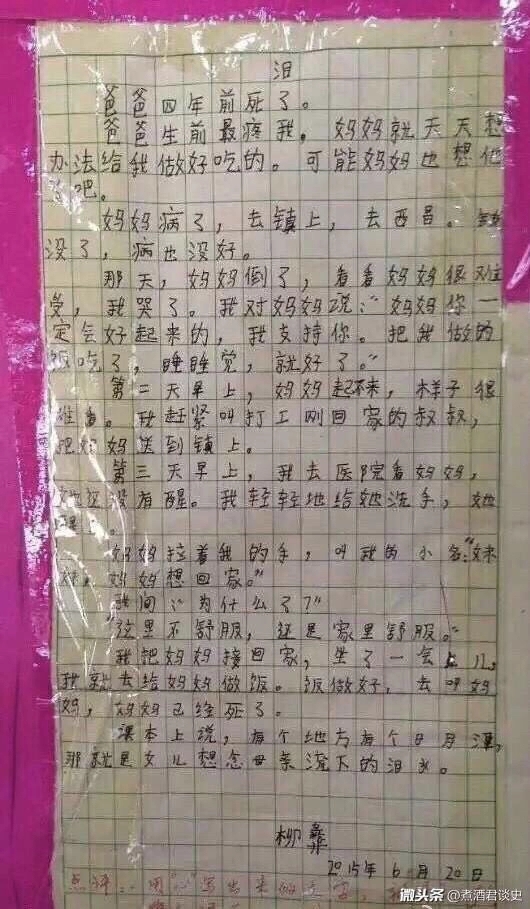 泪
爸爸四年前死了。
爸爸生前最疼我。妈妈就天天想
办法给我做好吃的。可能妈妈也想他
了吧。
妈妈病了,去镇上,去西昌。钱
没了,病也没好。
那天,妈妈倒了,看看妈妈很难
受,我哭了。我对妈妈说:“妈妈你一
定会好起来的,我支持你。把我做的
饭吃了,睡睡觉,就好了。”
第二天早上,妈妈起不来,样子很
难看。我赶紧叫打工刚回家的叔叔,
把妈妈送到镇上。
第三天早上,我去医院看妈妈,
她还没有醒。我轻轻地给她洗手,她
醒了。
妈妈拉着我的手,叫我的小名:“妹
妹,妈妈想回家。”
我问:“为什么了?”
“这里不舒服,还是家里舒服。”
我把妈妈接回家,坐了一会儿,
我就去给妈妈做饭。饭做好,去叫妈
妈,妈妈已经死了。
课本上说,有个地方有个日月潭,
那就是女儿想念母亲流下的泪水。
柳彝
2015年6月20日
点评:用“心”写出来的文字,
微头条 @煮酒君谈史